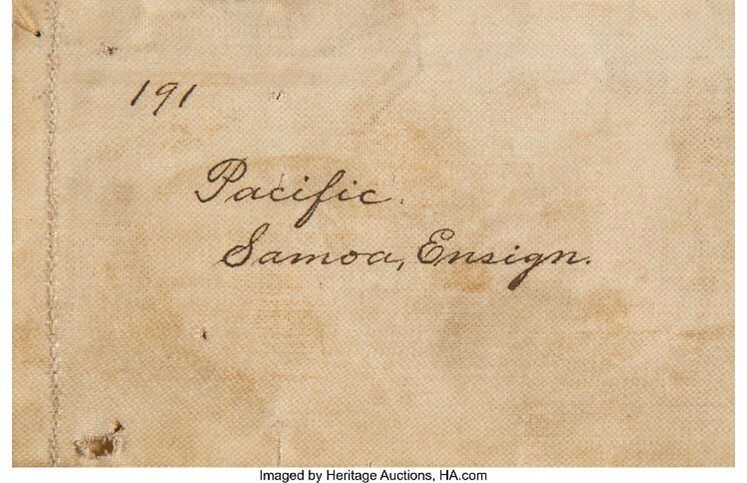 191
Pacific.
Samoa, Ensign.
Imaged by Heritage Auctions, HA.com